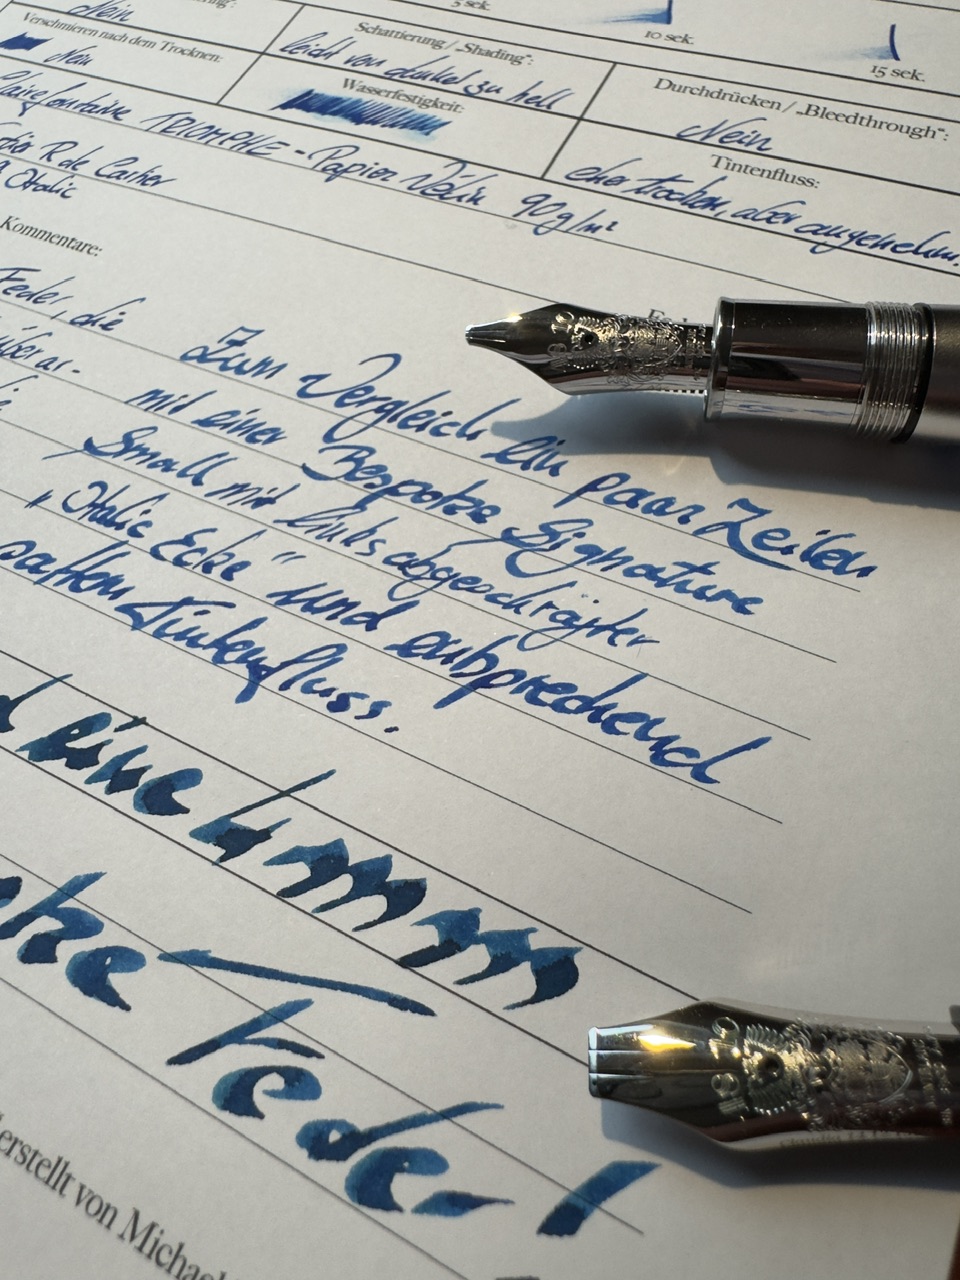 5 sek
10 sek.
15 sek.
Nein
Verschmieren nach dem Trocknen:
Nein
Schattierung / „Shading":
leicht von dunkel zu hell
Wasserfestigkeit:
Durchdrücken / „Bleedthrough":
Nein
Tintenfluss:
eher trocken, aber angenehm.
Clairefontaine TRIOMPHE - Papier Vélin 90g/m²
R de Cartier
Italic
Kommentare:
Feder, die
Zum Vergleich ein paar Zeilen
mit einer Bespoke Signature
Small mit links abgeschrägter
„Italic Ecke" und entsprechend
satten Tintenfluss.
eine
Feder!
erstellt von Michael